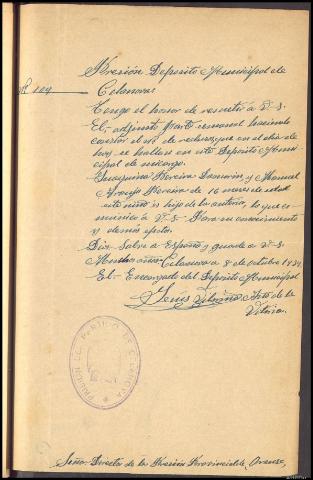 Prisión Deposito Municipal de
Celanova
Nº 104
Tengo el honor de remitir a V. S.
El adjunto Parte semanal haciendo
constar el nº de reclusos, que en el dia de
hoy se hallan en este Deposito Muni-
cipal de mi cargo.
Pereira y Manuel
Araujo Pereira de 16 meses de edad
este niño es hijo de la anterior, lo que co-
munico a V. S. Para su conocimiento
y demás efectos.
Dios Salve a España y guarde a V. S.
Muchos años. Celanova a 8 de octubre 1939
El Encargado del Deposito Municipal
Jesús
Año de la
Vitoria.
PRISION DE PARTIDO DE CELANOVA
Señor Director de la Prisión Provincial de Orense,